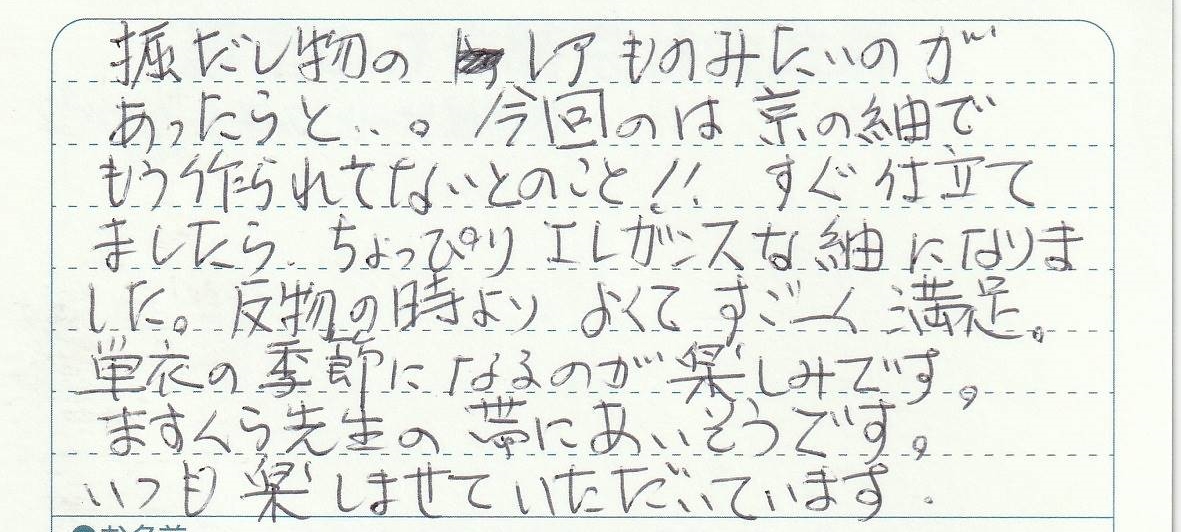 掘だし物の レアものみたいのが
あったらと...。今回のは京の紬で
もう作られてないとのこと!! すぐ仕立て
ましたら、ちょっぴりエレガンスな紬になりま
した。反物の時より よくて すごーく 満足。
単衣の季節になるのが楽しみです。
ますくら先生の帯にあいそうです。
いつも楽しませていただいています.